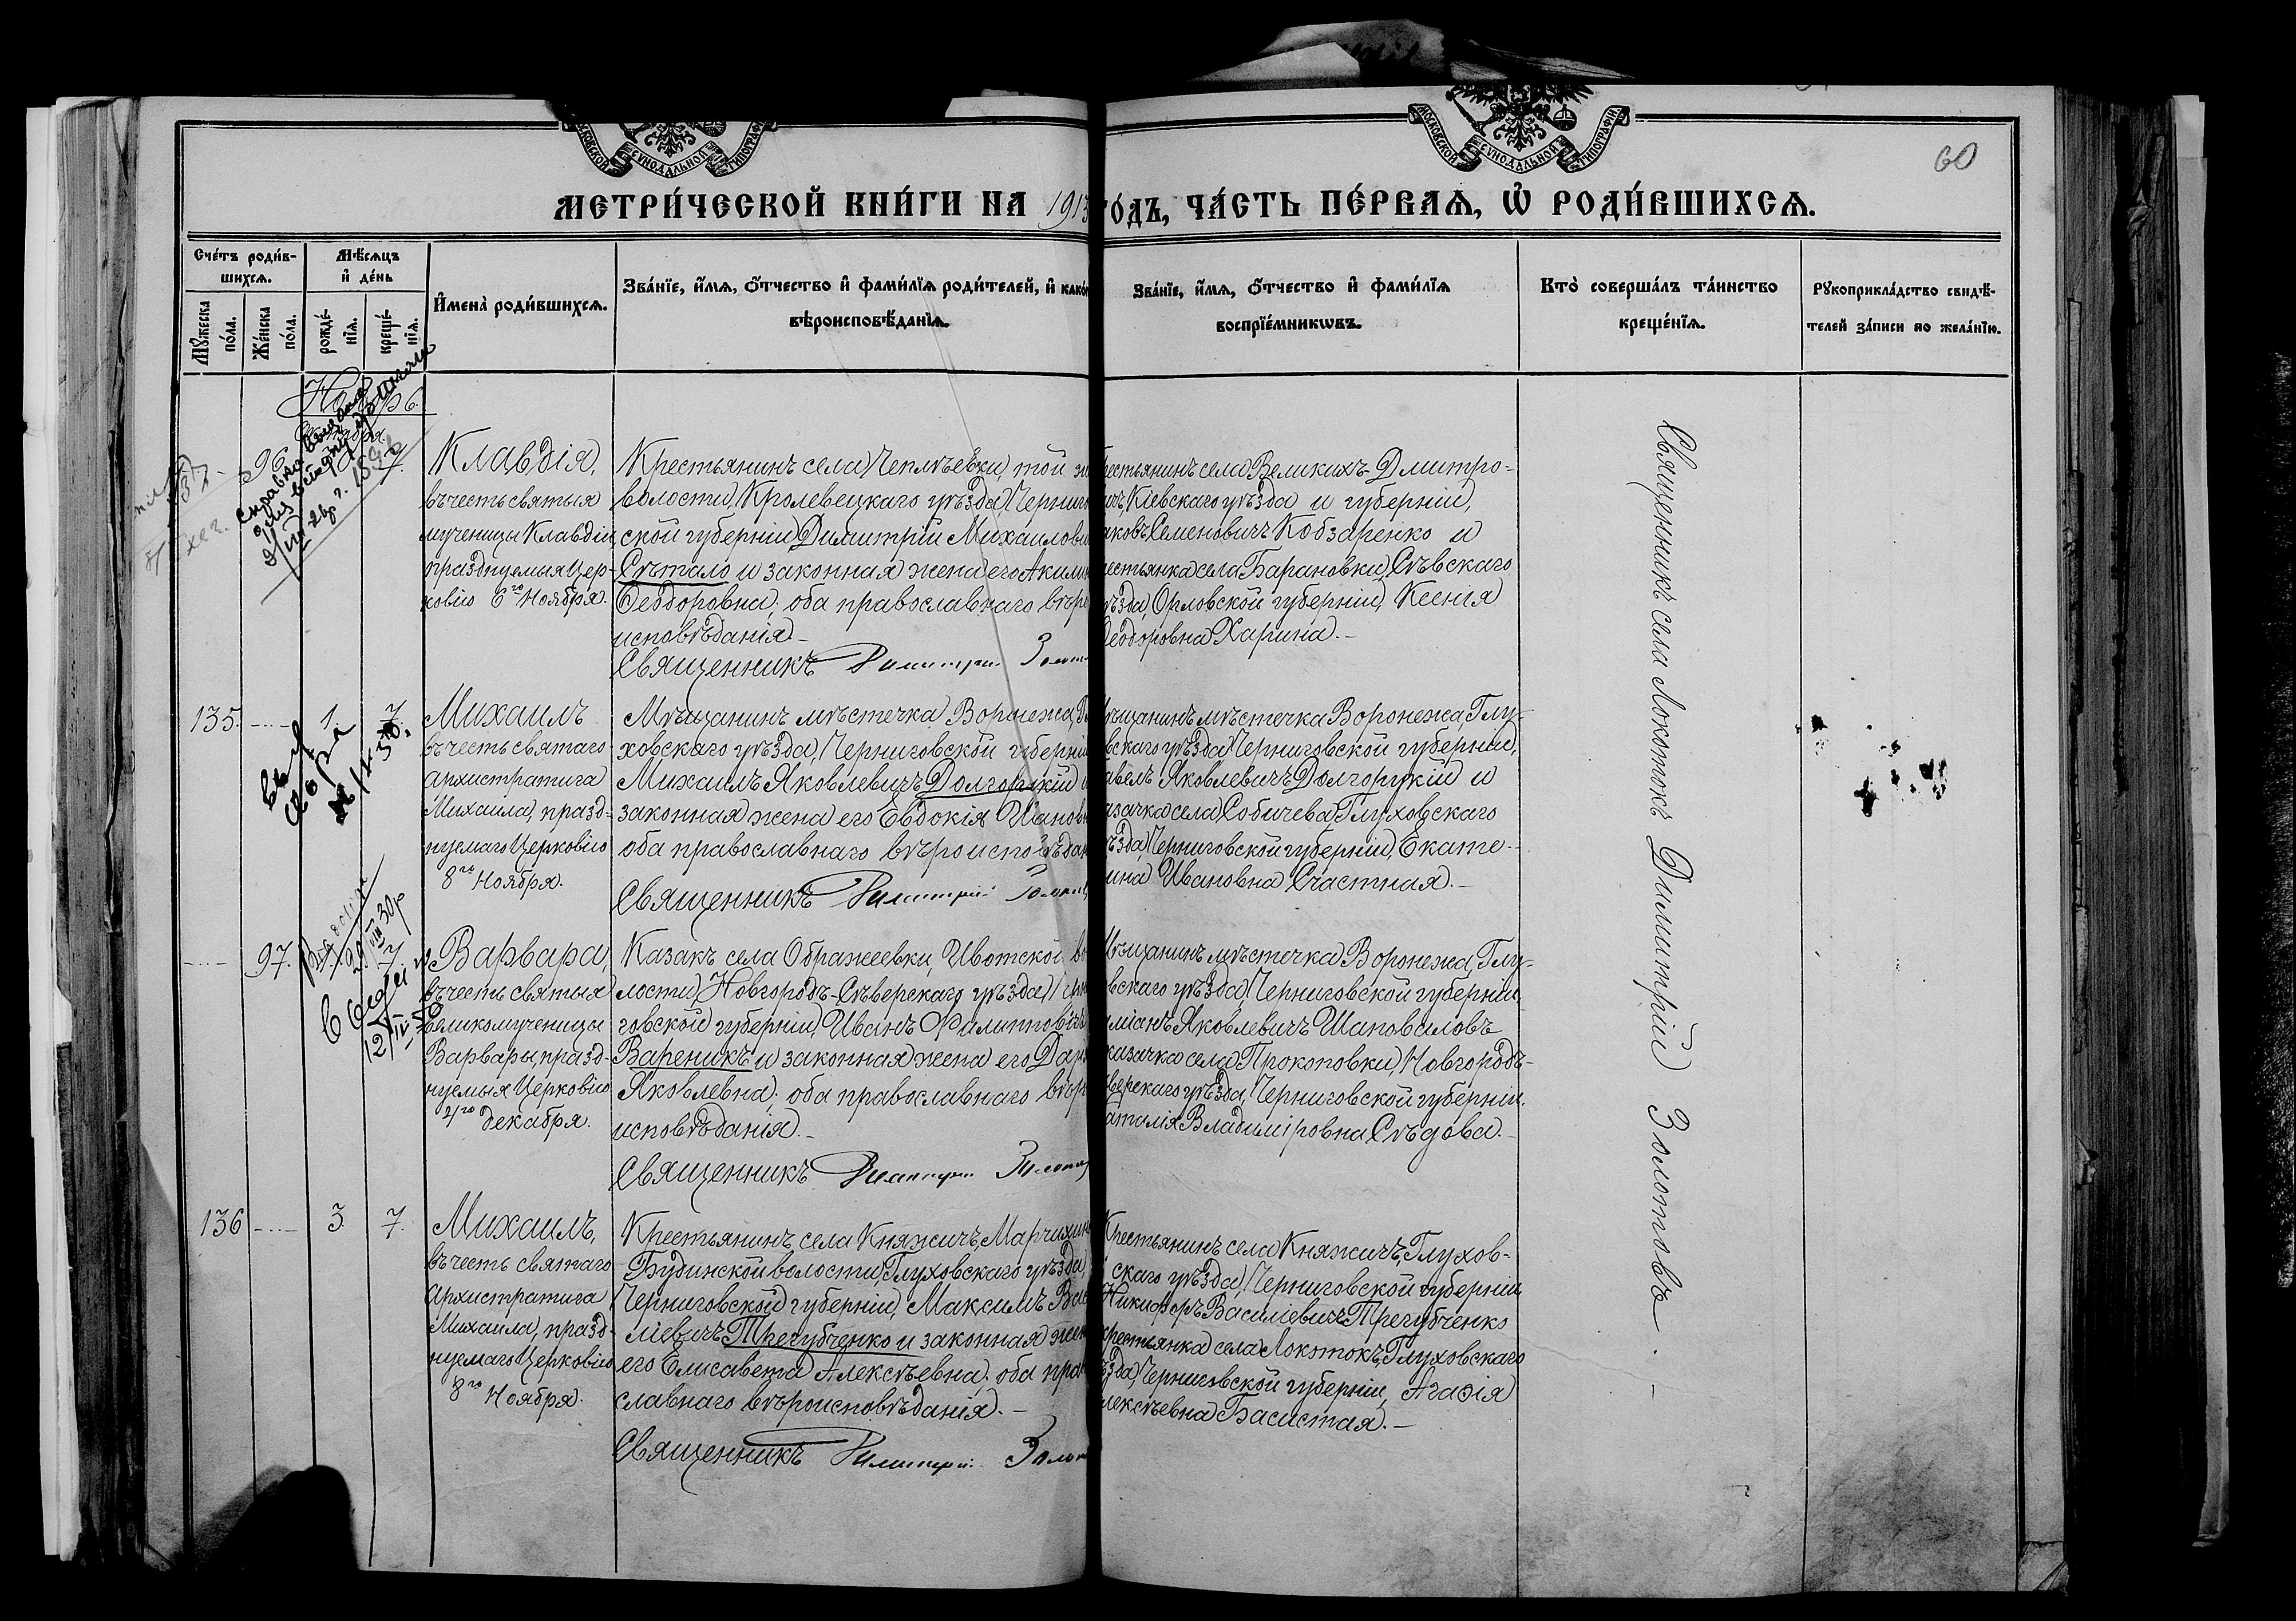 МОСКОВСКОЙ СѴНОДАЛЬНОЙ ТИПОГРАФІИ.
МОСКОВСКОЙ СѴНОДАЛЬНОЙ ТИПОГРАФІИ.
60
МЕТРИ́ЧЕСКОЙ КНИ́ГИ НА 1913
ГО́ДЪ, ЧА́СТЬ ПЕ́РВАѦ, Ѡ҆ РОДИ́ВШИХСѦ.
Сче́тъ роди́в-
шихсѧ.
Мꙋ́жеска по́ла.
Же́нска по́ла.
Мѣ́сѧцъ
и҆ де́нь
рожде́-
нїѧ.
креще́-
нїѧ.
И҆мена̀ роди́вшихсѧ.
Зва́нїе, и҆́мѧ, ѻ҆́тчество и҆ фами́лїѧ роди́телей, и҆ како́
вѣроисповѣ́данїѧ.
Зва́нїе, и҆́мѧ, ѻ҆́тчество и҆ фами́лїѧ
воспрїе́мникѡвъ.
Кто̀ соверша́лъ та́инство
креще́нїѧ.
Рꙋкоприкла́дство свидѣ́-
телей за́писи по жела́нїю.
Ноябрь
Октября.
96.
7.
Клавдія,
въ честь святыя
мученицы Клавдіи,
празднуемыя Цер-
ковію 6го Ноября.
Крестьянинъ села Чеплѣевки, той
волости, Кролевецкаго уѣзда, Черниг
ской губерніи Димитрій Михаилови
Сѣтало и законная жена его Акили
Ѳеодоровна; оба православнаго вѣро
исповѣданія.–
Священникъ Димитрій Золот
рестьянинъ села Великихъ-Дмитро-
ичъ, Кіевскаго уѣзда и губерніи,
аковъ Семеновичъ Кобзаренко и
естьянка села Барановки, Сѣвскаго
ѣзда, Орловской губерніи, Ксенія
еодоровна Харина.–
135.
1.
7.
Михаилъ
въ честь святаго
Архистратига
Михаила, празд-
нуемаго Церковію
8го Ноября.
Мѣщанинъ мѣстечка Воронежа, Гл
ховскаго уѣзда, Черниговской губерні
Михаилъ Яковлевичъ Долгорукій и
законная жена его Евдокія Иванов
оба православнаго вѣроисповѣдан
Священникъ Димитрій Золот
ѣщанинъ мѣстечка Воронежа, Глу-
вскаго уѣзда, Черниговской губерніи,
авелъ Яковлевичъ Долгорукій и
азачка села Собичева, Глуховскаго
ѣзда, Черниговской губерніи, Екате-
ина Ивановна Счастная.–
97.
7.
Варвара,
въ честь святыя
великомученицы
Варвары, празд-
нуемыя Церковію
4го декабря.
Казакъ села Ображеевки, Ивотской во
лости, Новгородъ-Сѣверскаго уѣзда, Черни
говской губерніи Иванъ Филипповичъ
Вареникъ и законная жена его Дар
Яковлевна; оба православнаго вѣро
исповѣданія.–
Священникъ Димитрій Золот
ѣщанинъ мѣстечка Воронежа, Глу-
вскаго уѣзда, Черниговской губерніи,
миліанъ Яковлевичъ Шаповаловъ
казачка села Прокоповки, Новгородъ-
верскаго уѣзда, Черниговской губерніи,
аталія Владиміровна Сѣдова.–
136
3
7.
Михаилъ,
въ честь святаго
Архистратига
Михаила, празд-
нуемаго Церковію
8го Ноября.
Крестьянинъ села Княжичъ, Марчихин
Будинской волости, Глуховскаго уѣзда,
Черниговской губерніи, Максимъ Вас
ліевичъ Трегубченко и законная жен
его Елисавета Алексѣевна; оба прав
славнаго вѣроисповѣданія.–
Священникъ Димитрій Золот
Крестьянинъ села Княжичъ, Глухов-
скаго уѣзда, Черниговской губерніи,
Никифоръ Василіевичъ Трегубченко
крестьянка села Локотокъ, Глуховскаго
ѣзда, Черниговской губерніи, Агаѳія
лексѣевна Басистая.–
Священникъ села Локотокъ Димитрій Золотовъ.–